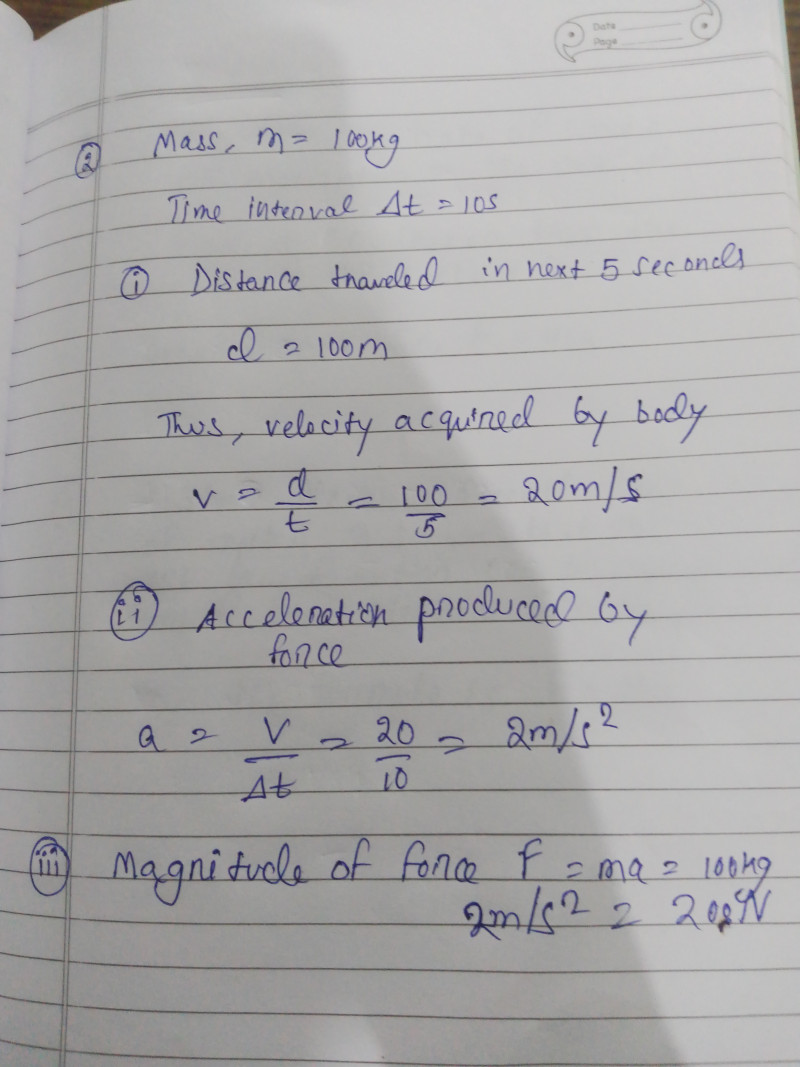 Date
Page
② Mass, m = 100kg
Time interval Δt = 10s
ⓘ Distance traveled in next 5 seconds
d = 100m
Thus, velocity acquired by body
v = d/t = 100/5 = 20m/s
ⅱ Acceleration produced by
force
a = V/Δt = 20/10 = 2m/s²
ⅲ Magnitude of force F = ma = 100kg
2m/s² =